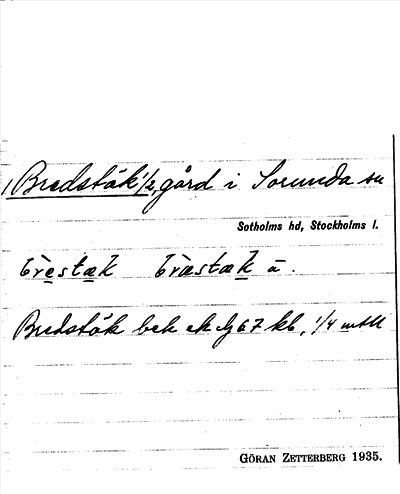 Bredstäk 1/2, gård i Sorunda sn
Sotholms hd, Stockholms l.
bre̲stæ̲k bræstæ̲k ā.
Bredstäk bek ek bl 67 kb, 1/4 mtl
GÖRAN ZETTERBERG 1935.